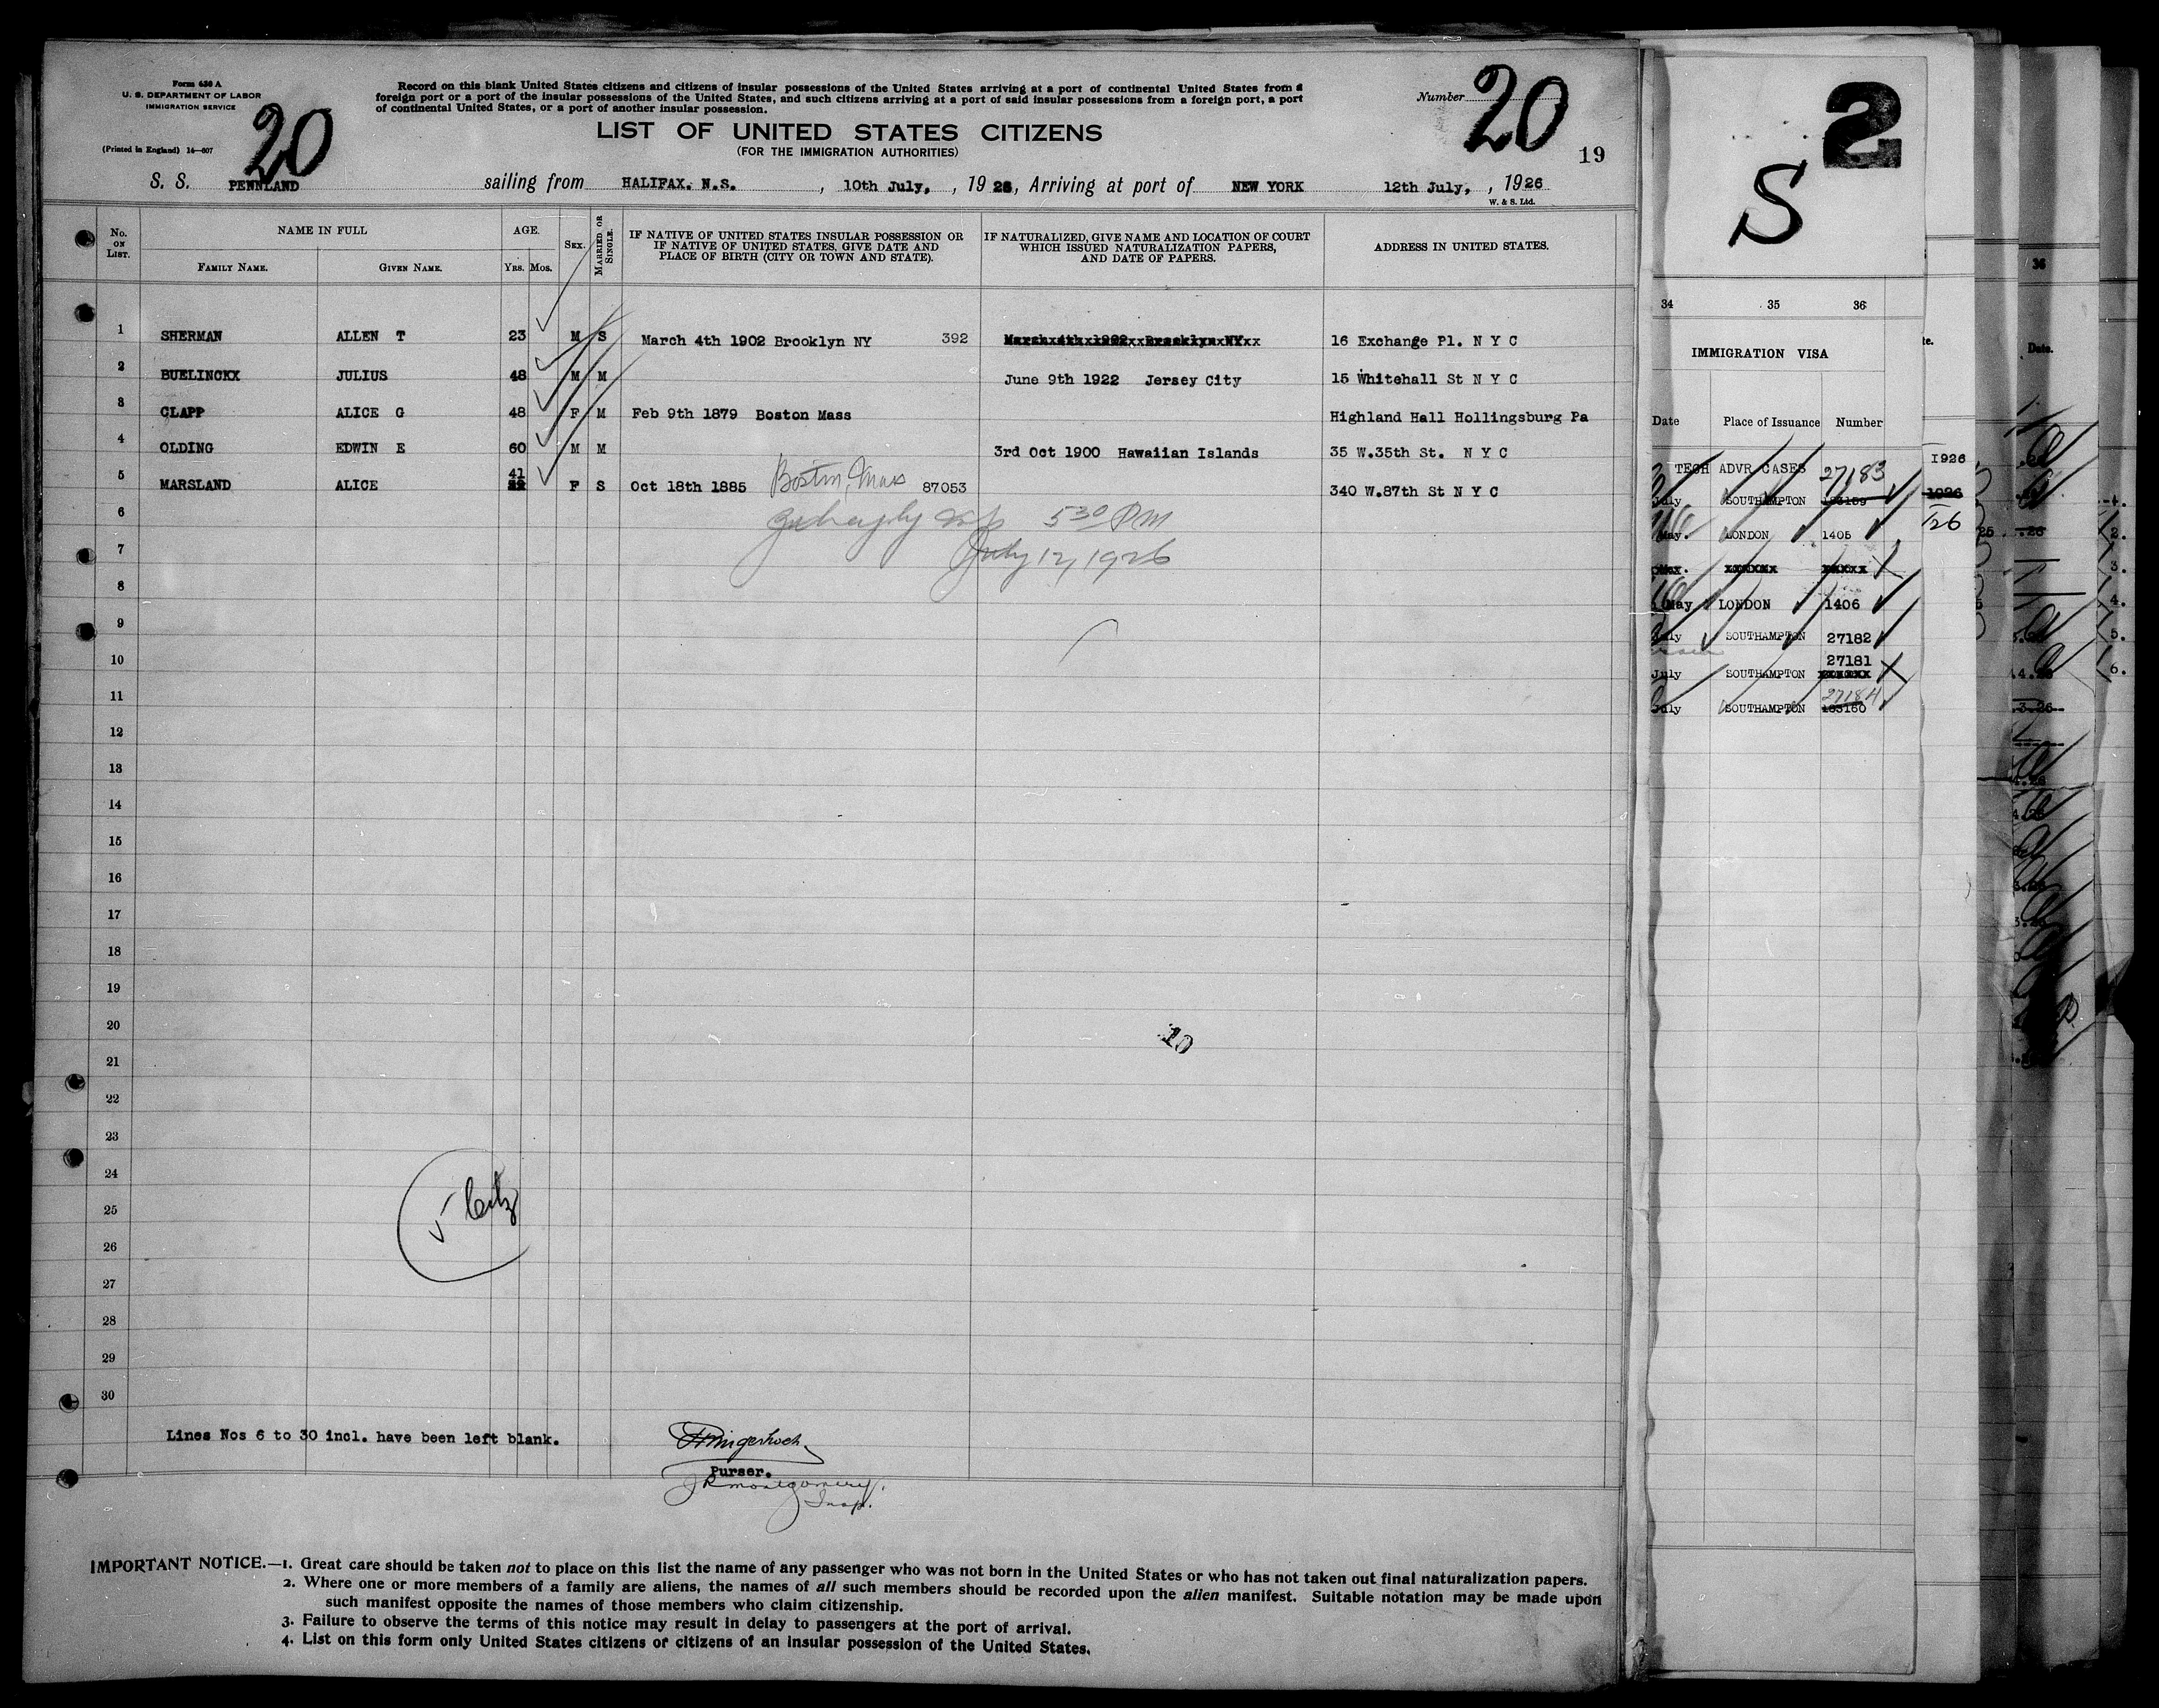 Form 630 A
U. S. DEPARTMENT OF LABOR
IMMIGRATION SERVICE
(Printed in England) 14—607
20
Record on this blank United States citizens and citizens of insular possessions of the United States arriving at a port of continental United States from a
foreign port or a port of the insular possessions of the United States, and such citizens arriving at a port of said insular possessions from a foreign port, a port
of continental United States, or a port of another insular possession.
LIST OF UNITED STATES CITIZENS
(FOR THE IMMIGRATION AUTHORITIES)
Number 20
19
S. S. PENNLAND sailing from HALIFAX. N.S. , 10th July, , 19 26, Arriving at port of NEW YORK 12th July, , 1926
W. & S. Ltd.
No. ON LIST. NAME IN FULL AGE. SEX. MARRIED OR SINGLE. IF NATIVE OF UNITED STATES INSULAR POSSESSION OR IF NATIVE OF UNITED STATES, GIVE DATE AND PLACE OF BIRTH (CITY OR TOWN AND STATE). IF NATURALIZED, GIVE NAME AND LOCATION OF COURT WHICH ISSUED NATURALIZATION PAPERS, AND DATE OF PAPERS. ADDRESS IN UNITED STATES.
FAMILY NAME. GIVEN NAME. YRS. MOS.
1 SHERMAN ALLEN T 23 M S March 4th 1902 Brooklyn NY 392 16 Exchange Pl. N Y C
2 BUELINCKX JULIUS 48 M M June 9th 1922 Jersey City 15 Whitehall St N Y C
3 CLAPP ALICE G 48 F M Feb 9th 1879 Boston Mass Highland Hall Hollingsburg Pa
4 OLDING EDWIN E 60 M M 3rd Oct 1900 Hawaiian Islands 35 W.35th St. N Y C
5 MARSLAND ALICE 41 F S Oct 18th 1885 Boston, Mass 87053 340 W.87th St N Y C
6 5 30 PM
7 July 12, 1926
8
9
10
11
12
13
14
15
16
17
18
19
20
10
21
22
23
24
25
26
27
28
29
30
Lines Nos 6 to 30 incl. have been left blank.
Purser.
J R Montgomery.
Insp.
IMPORTANT NOTICE.—1. Great care should be taken not to place on this list the name of any passenger who was not born in the United States or who has not taken out final naturalization papers.
2. Where one or more members of a family are aliens, the names of all such members should be recorded upon the alien manifest. Suitable notation may be made upon
such manifest opposite the names of those members who claim citizenship.
3. Failure to observe the terms of this notice may result in delay to passengers at the port of arrival.
4. List on this form only United States citizens or citizens of an insular possession of the United States.
2
S
34 35 36
IMMIGRATION VISA
Date Place of Issuance Number
TECH ADVR CASES 27183
July SOUTHAMPTON
May. LONDON 1405
May LONDON 1406
July SOUTHAMPTON 27182
27181
July SOUTHAMPTON
27184
July SOUTHAMPTON 183160
1926
36
Date.
1.
2.
3.
4.
5.
6.